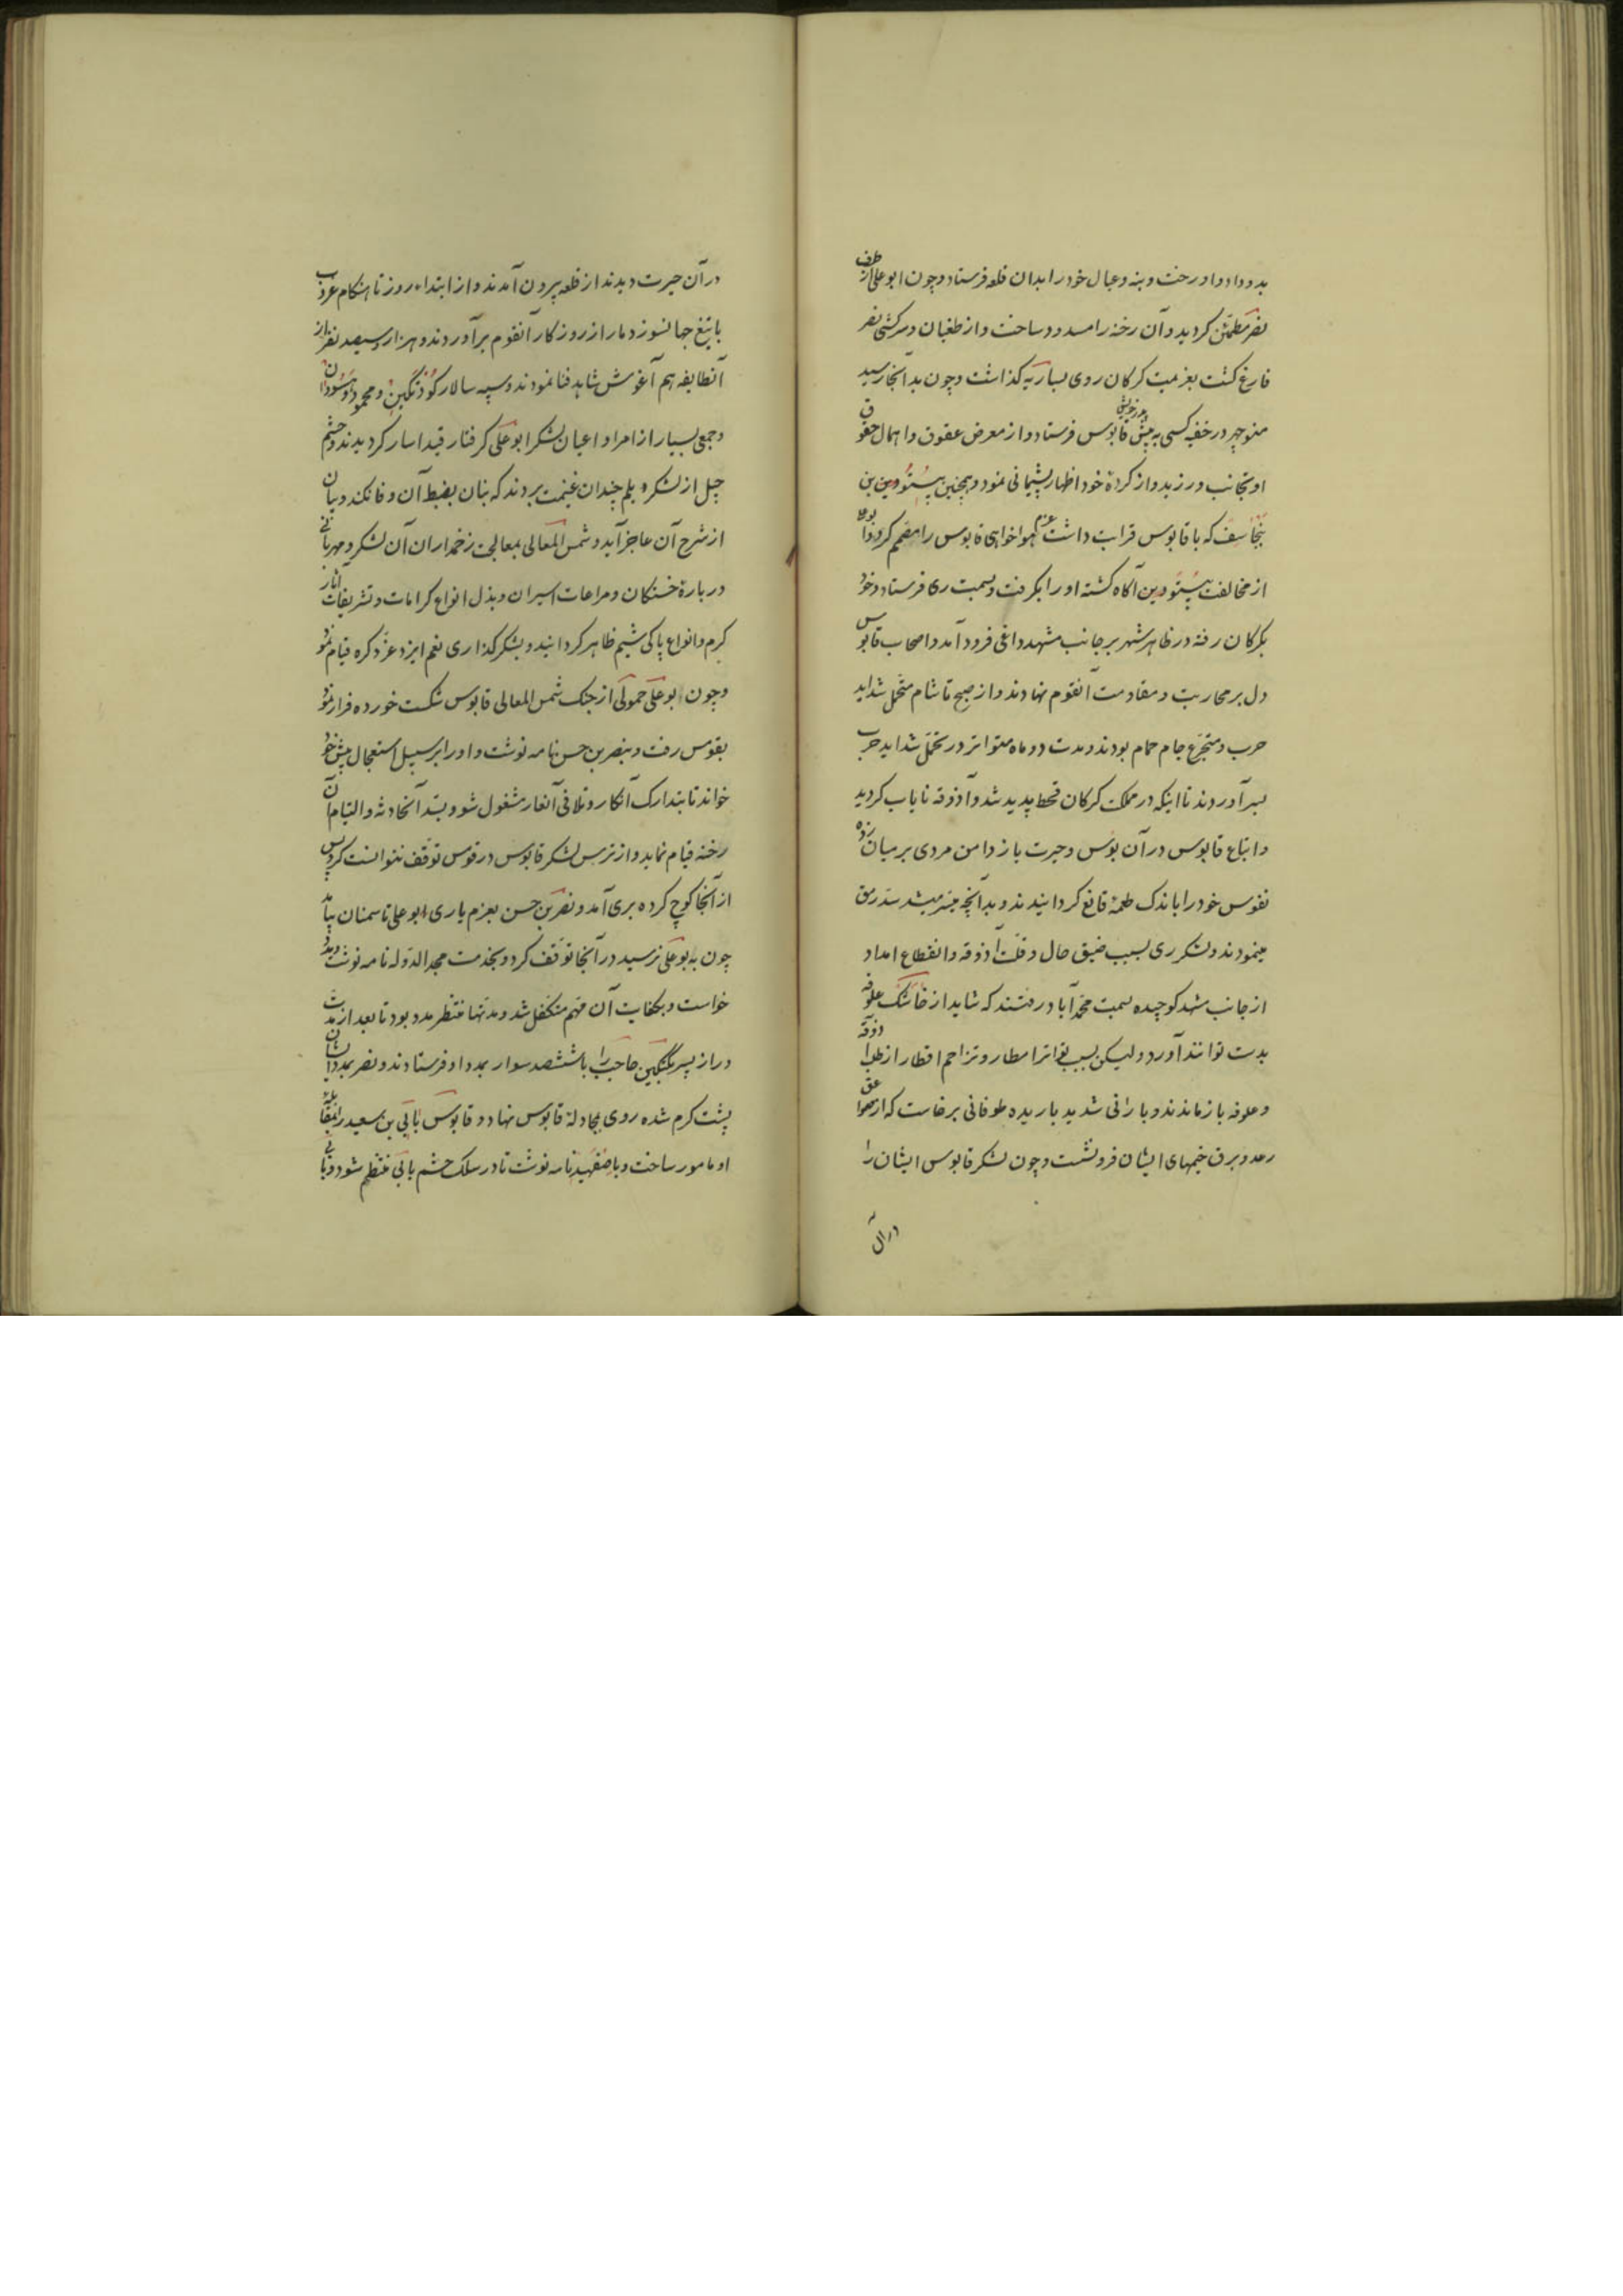 بدو داد و او رخت و بنه و عیال خود را بدان قلعه فرستاد و چون ابو علی از طرف
نصر مطمئن کردید و آن رخنه را مسدود ساخت و از طغیان و سرکشی نصر
فارغ کشت بعزیمت کرکان روی بساریه کذاشت و چون بدآنجا رسید
منوچهر در خفیه کسی به پیش پدر خویش قابوس فرستاد و از معرض عقوق و اهمال حقوق
او تجانب ورزید و از کردهٔ خود اظهار پشیمانی نمود و همچنین بیستودین بن
بنجاسف که با قابوس قرابت داشت عزم هواخواهی قابوس را مصمم کرد و ابو علی
از مخالفت بیستودین آکاه کشته او را بکرفت و بسمت ری فرستاد و خود
بکرکان رفته در ظاهر شهر بر جانب مشهد داعی فرود آمد و اصحاب قابوس
دل بر محاربت و مقاومت آنقوم نهادند و از صبح تا شام متحمل شداید
حرب و متجرّع جام حمام بودند و مدت دو ماه متواتر در تحمّل شداید حرب
بسر آوردند تا اینکه در مملکت کرکان قحط پدید شد و آذوقه نایاب کردید
و اتباع قابوس در آن بؤس و حیرت باز دامن مردی بر میان زده
نفوس خود را باندک طعمهٔ قانع کردانیدند و بدآنچه میسّر میشد سدّ رمق
مینمودند و لشکر ری بسبب ضیق حال و قلّت آذوقه و انقطاع امداد
از جانب شهد کوچیده بسمت محمّدآباد رفتند که شاید از خاشک علوفه
بدست توانند آورد و لیکن بسبب تواتر امطار و تزاحم اقطار از طلب آذوقه
و علوفه باز ماندند و بارانی شدید باریده طوفانی برخاست که از صواعق
رعد و برق خیمهای ایشان فرو نشست و چون لشکر قابوس ایشان را
در آن
در آن حیرت دیدند از قلعه بیرون آمدند و از ابتداء روز تا هنکام غروب
با تیغ جهانسوز دمار از روزکار آنقوم برآوردند و هزار و سیصد نفر از
آنطایفه هم آغوش شاهد فنا نمودند و سپه سالار کورنکین و محمود وهسودان
و جمعی بسیار از امرا و اعیان لشکر ابو علی کرفتار قید اسار کردیدند و حشم
جیل از لشکر دیلم چندان غنیمت بردند که بنان بضبط آن وفا نکند و بیان
از شرح آن عاجز آید و شمس المعالی بمعالجت زخمداران آن لشکر و مهربانی
در بارهٔ خستکان و مراعات اسیران و بذل انواع کرامات و تشریفات آثار
کرم و انواع پاکی شیم ظاهر کردانید و بشکر کذاری نعم ایزد عزّ ذکره قیام نمود
و چون ابو علی حمولی از جنک شمس المعالی قابوس شکست خورده فرار نمود
بقومس رفت و بنصر بن حسن نامه نوشت و او را بر سبیل استعجال پیش خود
خواند تا بتدارک آنکار و تلافی آنعار مشغول شود و بسدّ آنحادثه و التیام آن
رخنه قیام نماید و از ترس لشکر قابوس در قومس توقّف نتوانست کرد پس
از آنجا کوچ کرده بری آمد و نصر بن حسن بعزم یاری ابو علی تا سمنان بیآمد
چون به بو علی نرسید در آنجا توقّف کرد و بخدمت مجد الدّوله نامه نوشت و مدد
خواست و بکفایت آن مهم متکفّل شد و مدتها منتظر مدد بود تا بعد از مدّت
دراز پسر بکتکین حاجب را با ششصد سوار بمدد او فرستادند و نصر بمدد ایشان
پشت کرم شده روی بمجادلهٔ قابوس نهاد و قابوس باتی بن سعید را بمقابله
او مامور ساخت و باصفهبد نامه نوشت تا در سلک حشم باتی منتظم شود و باتی